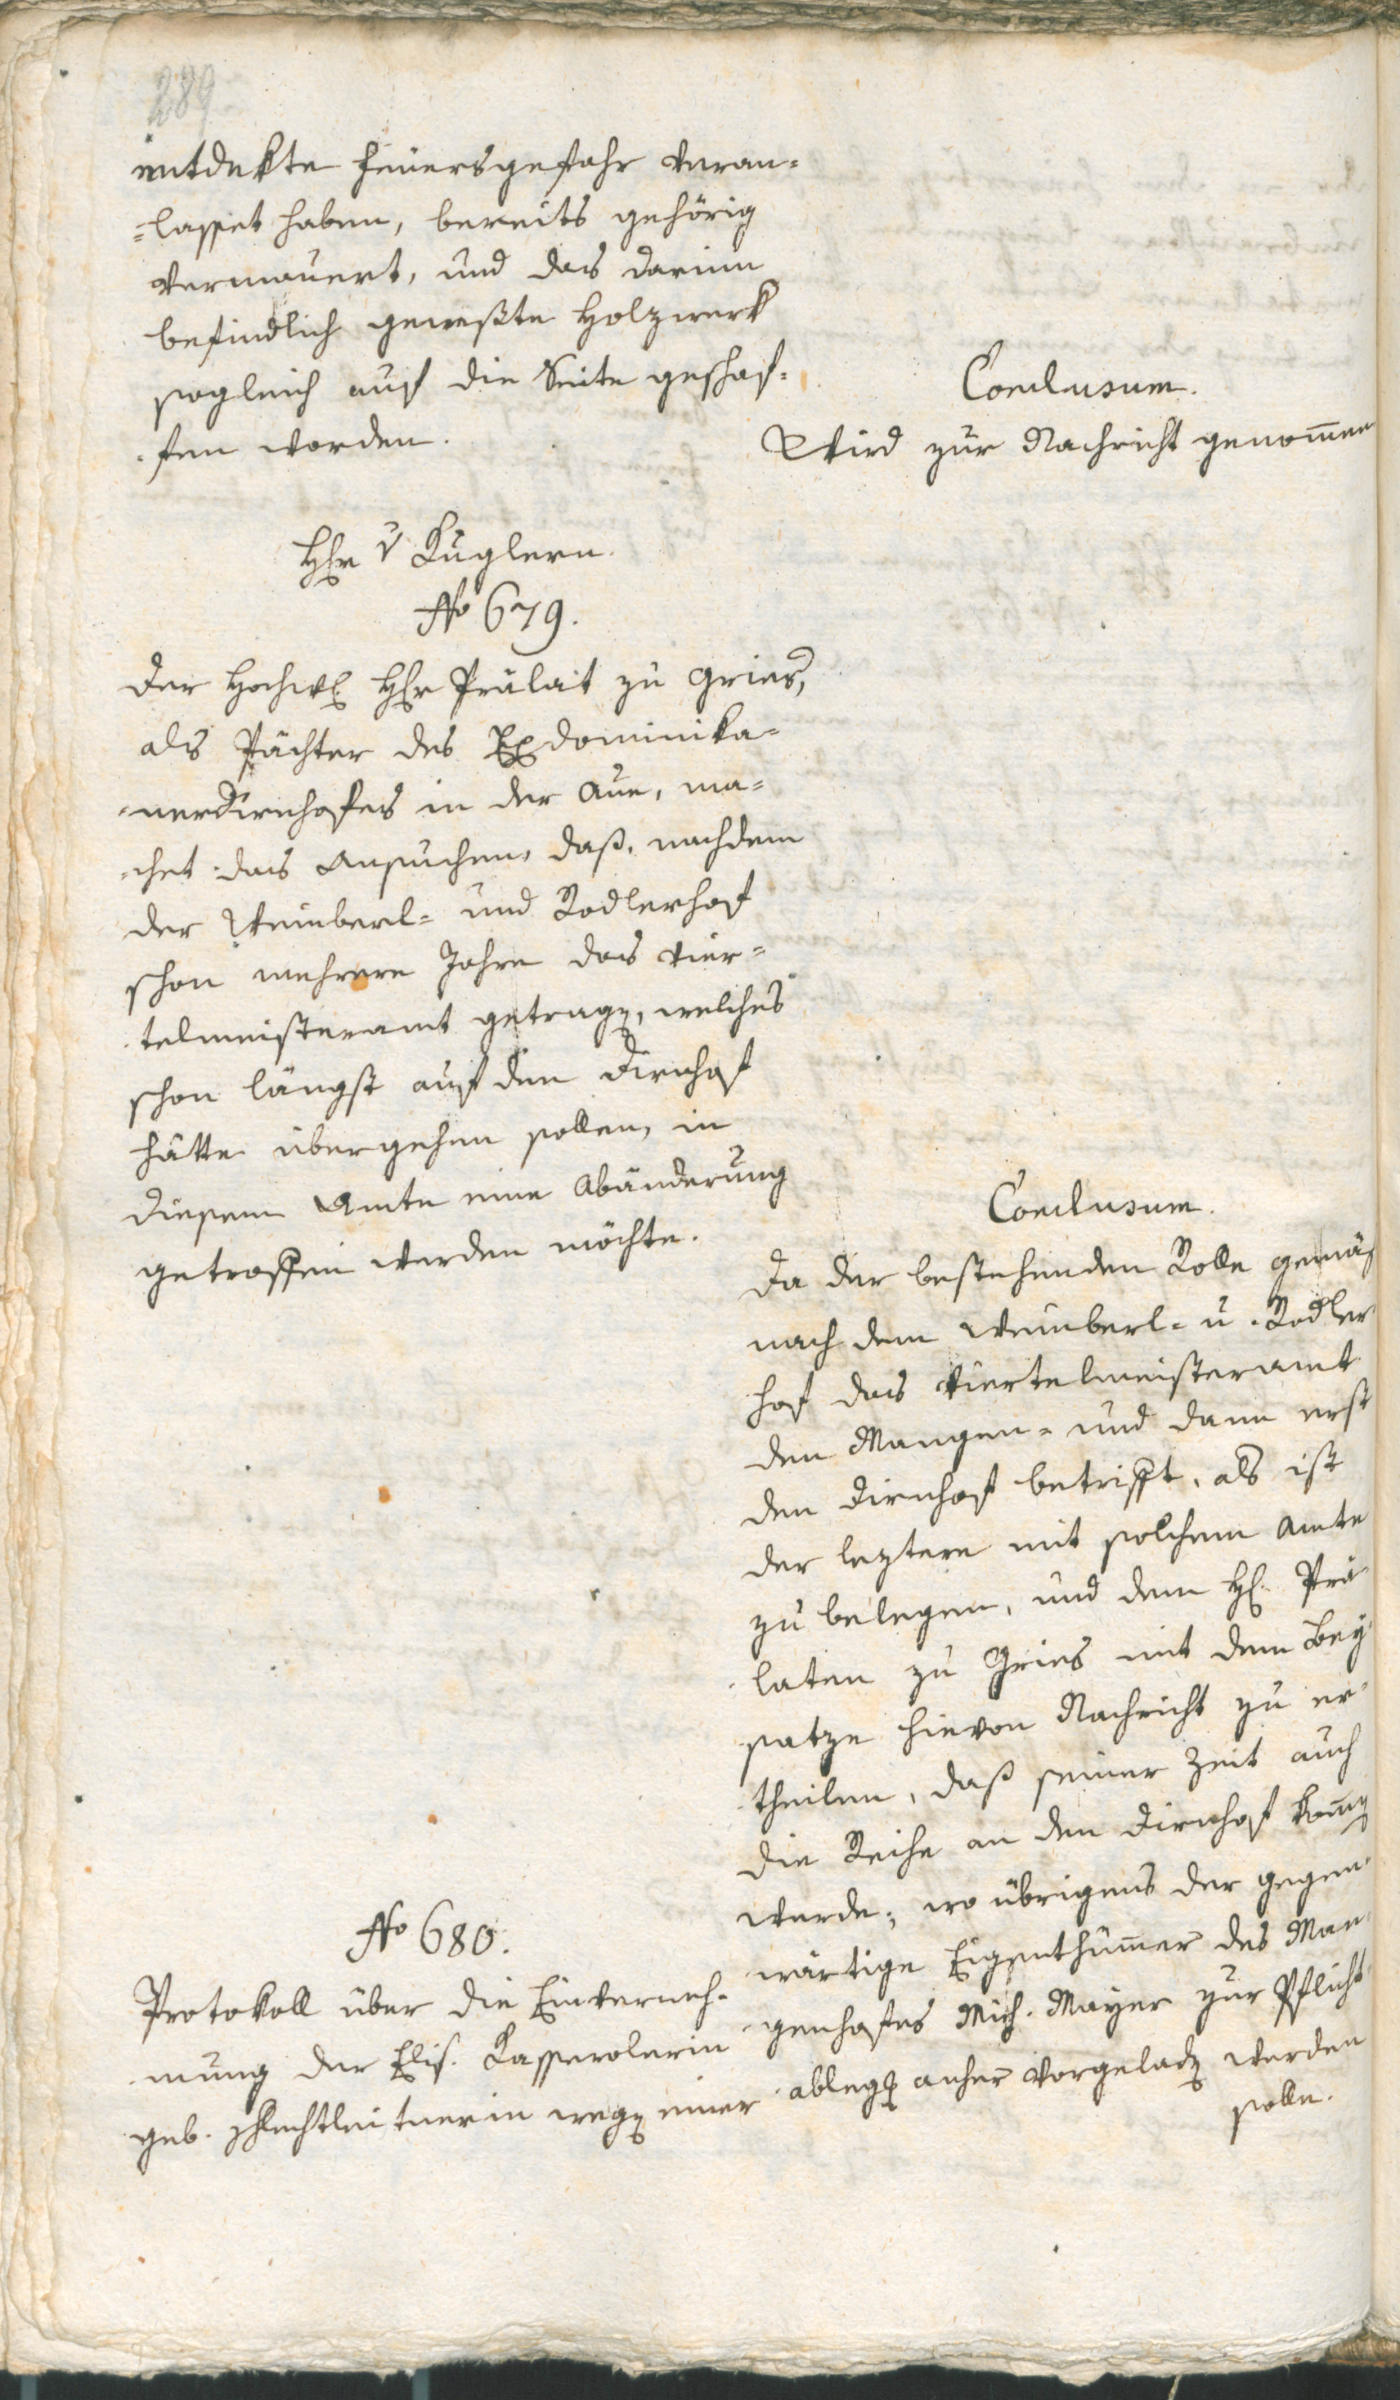 289
entdekte Feuersgefahr veran-
-lasset haben, bereits gehörig
vermauert, und das darinn
befindlich geweßte Holzwerk
sogleich auf die Seite geschaf-
-fen worden.
Conclusum.
Wird zur Nachricht genom̅en
Hr v Kuglern.
No 679.
Der Hochw. Hr Prälat zu Gries,
als Pächter des Exdominika-
-nerdirnhofes in der Aue, ma-
-chet das Ansuchen, daß, nachdem
der Weinberl- und Rodlerhof
schon mehrere Jahre das Vier-
-telmeisteramt getragen, welches
schon längst auf den Dirnhof
hätte übergehen sollen, in
diesem Amte eine Abänderung
getroffen werden möchte.
Conclusum.
Da der bestehenden Rolle gemäs
nach dem Weinberl- u. Rodler
hof das Viertelmeisteramt
den Mangen- und dann erst
den Dirnhof betrifft, als ist
der leztere mit solchem Amte
zu belegen, und dem H. Prä-
-laten zu Gries mit dem Bey-
satze hievon Nachricht zu er-
-theilen, daß seiner Zeit auch
die Reihe an den Dirnhof kom̅en
werde; wo übrigens der gegen-
wärtige Eigenthüm̅er des Man-
-genhofes Mich. Mayer zur Pflicht-
ablegg anher vorgeladen werden
solle.
No 680.
Protokoll über die Einverneh-
-mung der Elis. Kasserolerin
geb. Schlechtleitnerin wegen einer